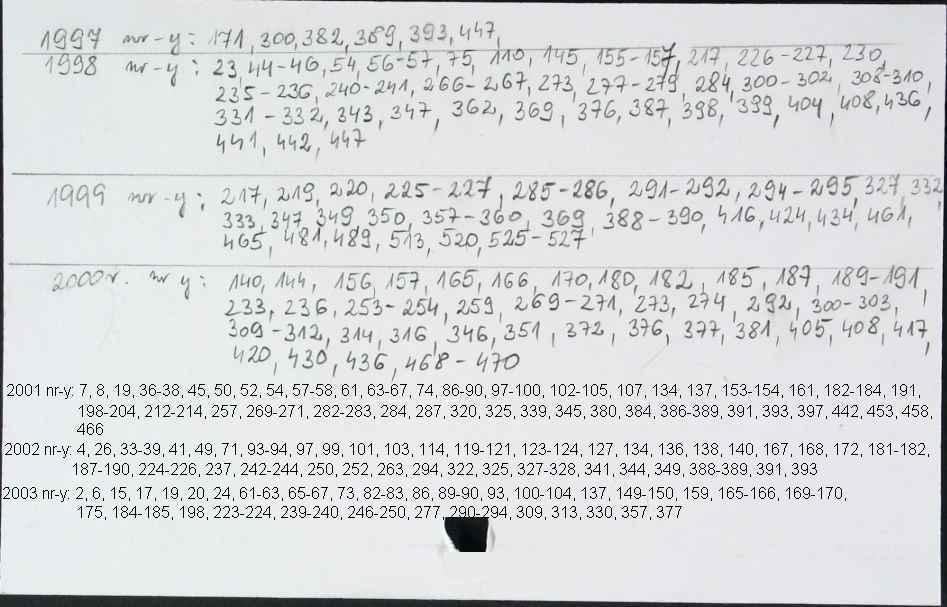 1997 nr-y: 171, 300, 382, 389, 393, 447,
1998 nr-y: 23, 44-46, 54, 56-57, 75, 110, 145, 155-157, 217, 226-227, 230,
235-236, 240-241, 266-267, 273, 277-279, 284, 300-302, 308-310,
331-332, 343, 347, 362, 369, 376, 387, 398, 399, 404, 408, 436,
441, 442, 447
1999 nr-y: 217, 219, 220, 225-227, 285-286, 291-292, 294-295, 327, 332,
333, 347, 349, 350, 357-360, 369, 388-390, 416, 424, 434, 461,
465, 481, 489, 513, 520, 525-527
2000r. nr y: 140, 144, 156, 157, 165, 166, 170, 180, 182, 185, 187, 189-191,
233, 236, 253-254, 259, 269-271, 273, 274, 292, 300-303,
309-312, 314, 316, 346, 351, 372, 376, 377, 381, 405, 408, 417,
420, 430, 436, 468-470
2001 nr-y: 7, 8, 19, 36-38, 45, 50, 52, 54, 57-58, 61, 63-67, 74, 86-90, 97-100, 102-105, 107, 134, 137, 153-154, 161, 182-184, 191,
198-204, 212-214, 257, 269-271, 282-283, 284, 287, 320, 325, 339, 345, 380, 384, 386-389, 391, 393, 397, 442, 453, 458,
466
2002 nr-y: 4, 26, 33-39, 41, 49, 71, 93-94, 97, 99, 101, 103, 114, 119-121, 123-124, 127, 134, 136, 138, 140, 167, 168, 172, 181-182,
187-190, 224-226, 237, 242-244, 250, 252, 263, 294, 322, 325, 327-328, 341, 344, 349, 388-389, 391, 393
2003 nr-y: 2, 6, 15, 17, 19, 20, 24, 61-63, 65-67, 73, 82-83, 86, 89-90, 93, 100-104, 137, 149-150, 159, 165-166, 169-170,
175, 184-185, 198, 223-224, 239-240, 246-250, 277, 290-294, 309, 313, 330, 357, 377